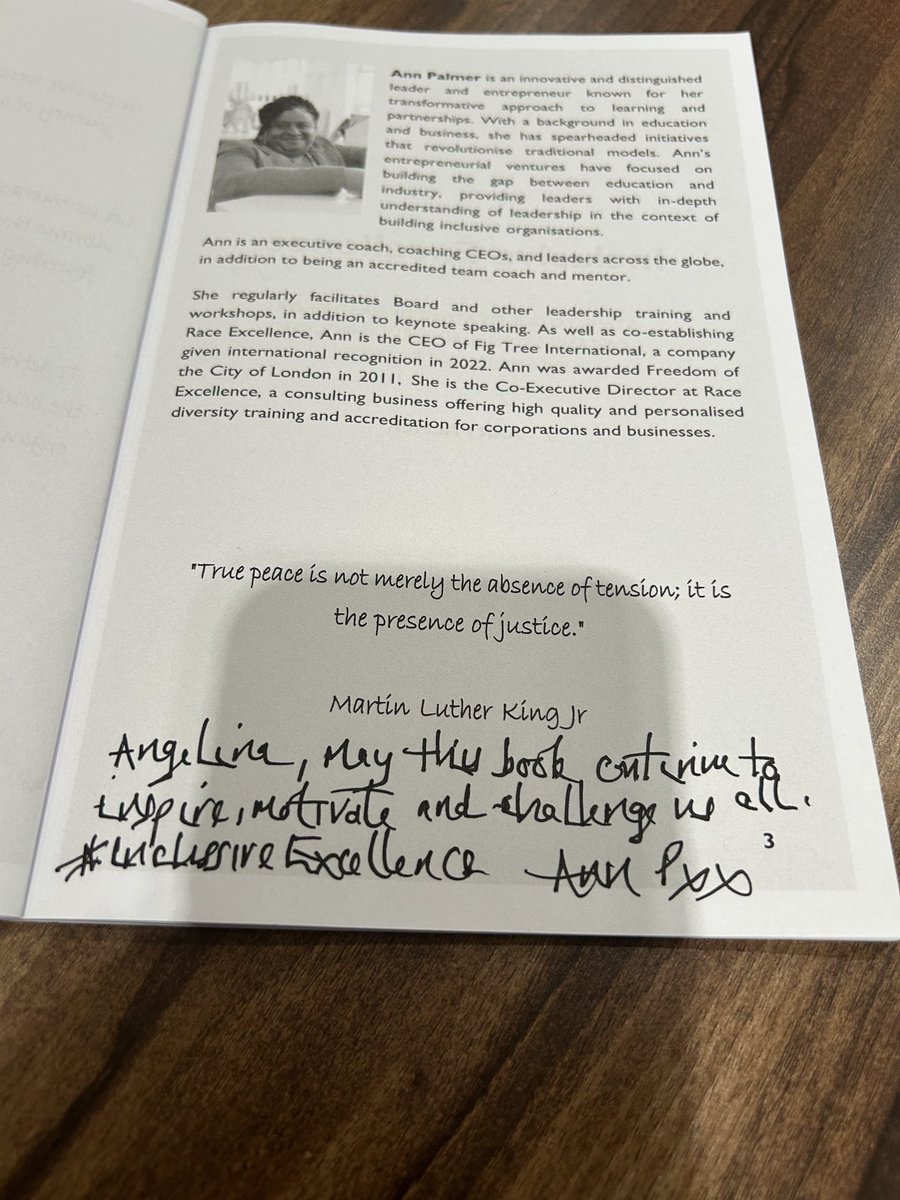 Ann Palmer is an innovative and distinguished
leader and entrepreneur known for her
transformative approach to learning and
partnerships. With a background in education
and business, she has spearheaded initiatives
that revolutionise traditional models. Ann's
entrepreneurial ventures have focused on
building the gap between education and
industry, providing leaders with in-depth
understanding of leadership in the context of
building inclusive organisations.
Ann is an executive coach, coaching CEOs, and leaders across the globe,
in addition to being an accredited team coach and mentor.
She regularly facilitates Board and other leadership training and
workshops, in addition to keynote speaking. As well as co-establishing
Race Excellence, Ann is the CEO of Fig Tree International, a company
given international recognition in 2022. Ann was awarded Freedom of
the City of London in 2011, She is the Co-Executive Director at Race
Excellence, a consulting business offering high quality and personalised
diversity training and accreditation for corporations and businesses.
"True peace is not merely the absence of tension; it is
the presence of justice."
Martin Luther King Jr
Angelina, May this book continue to
inspire, motivate and challenge us all.
#InclusiveExcellence Ann Pxx
3